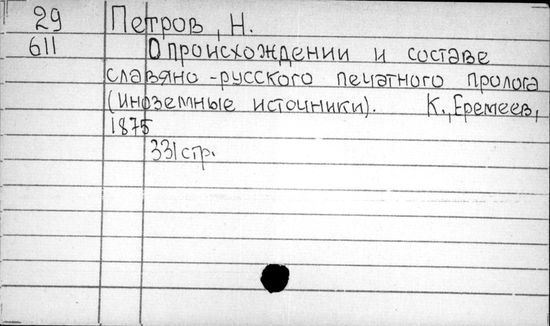 29 Петров, Н.
611 О происхождении и составе
славяно-русского печатного пролога
(иноземные источники). К., Еремеев,
1875
331 стр.